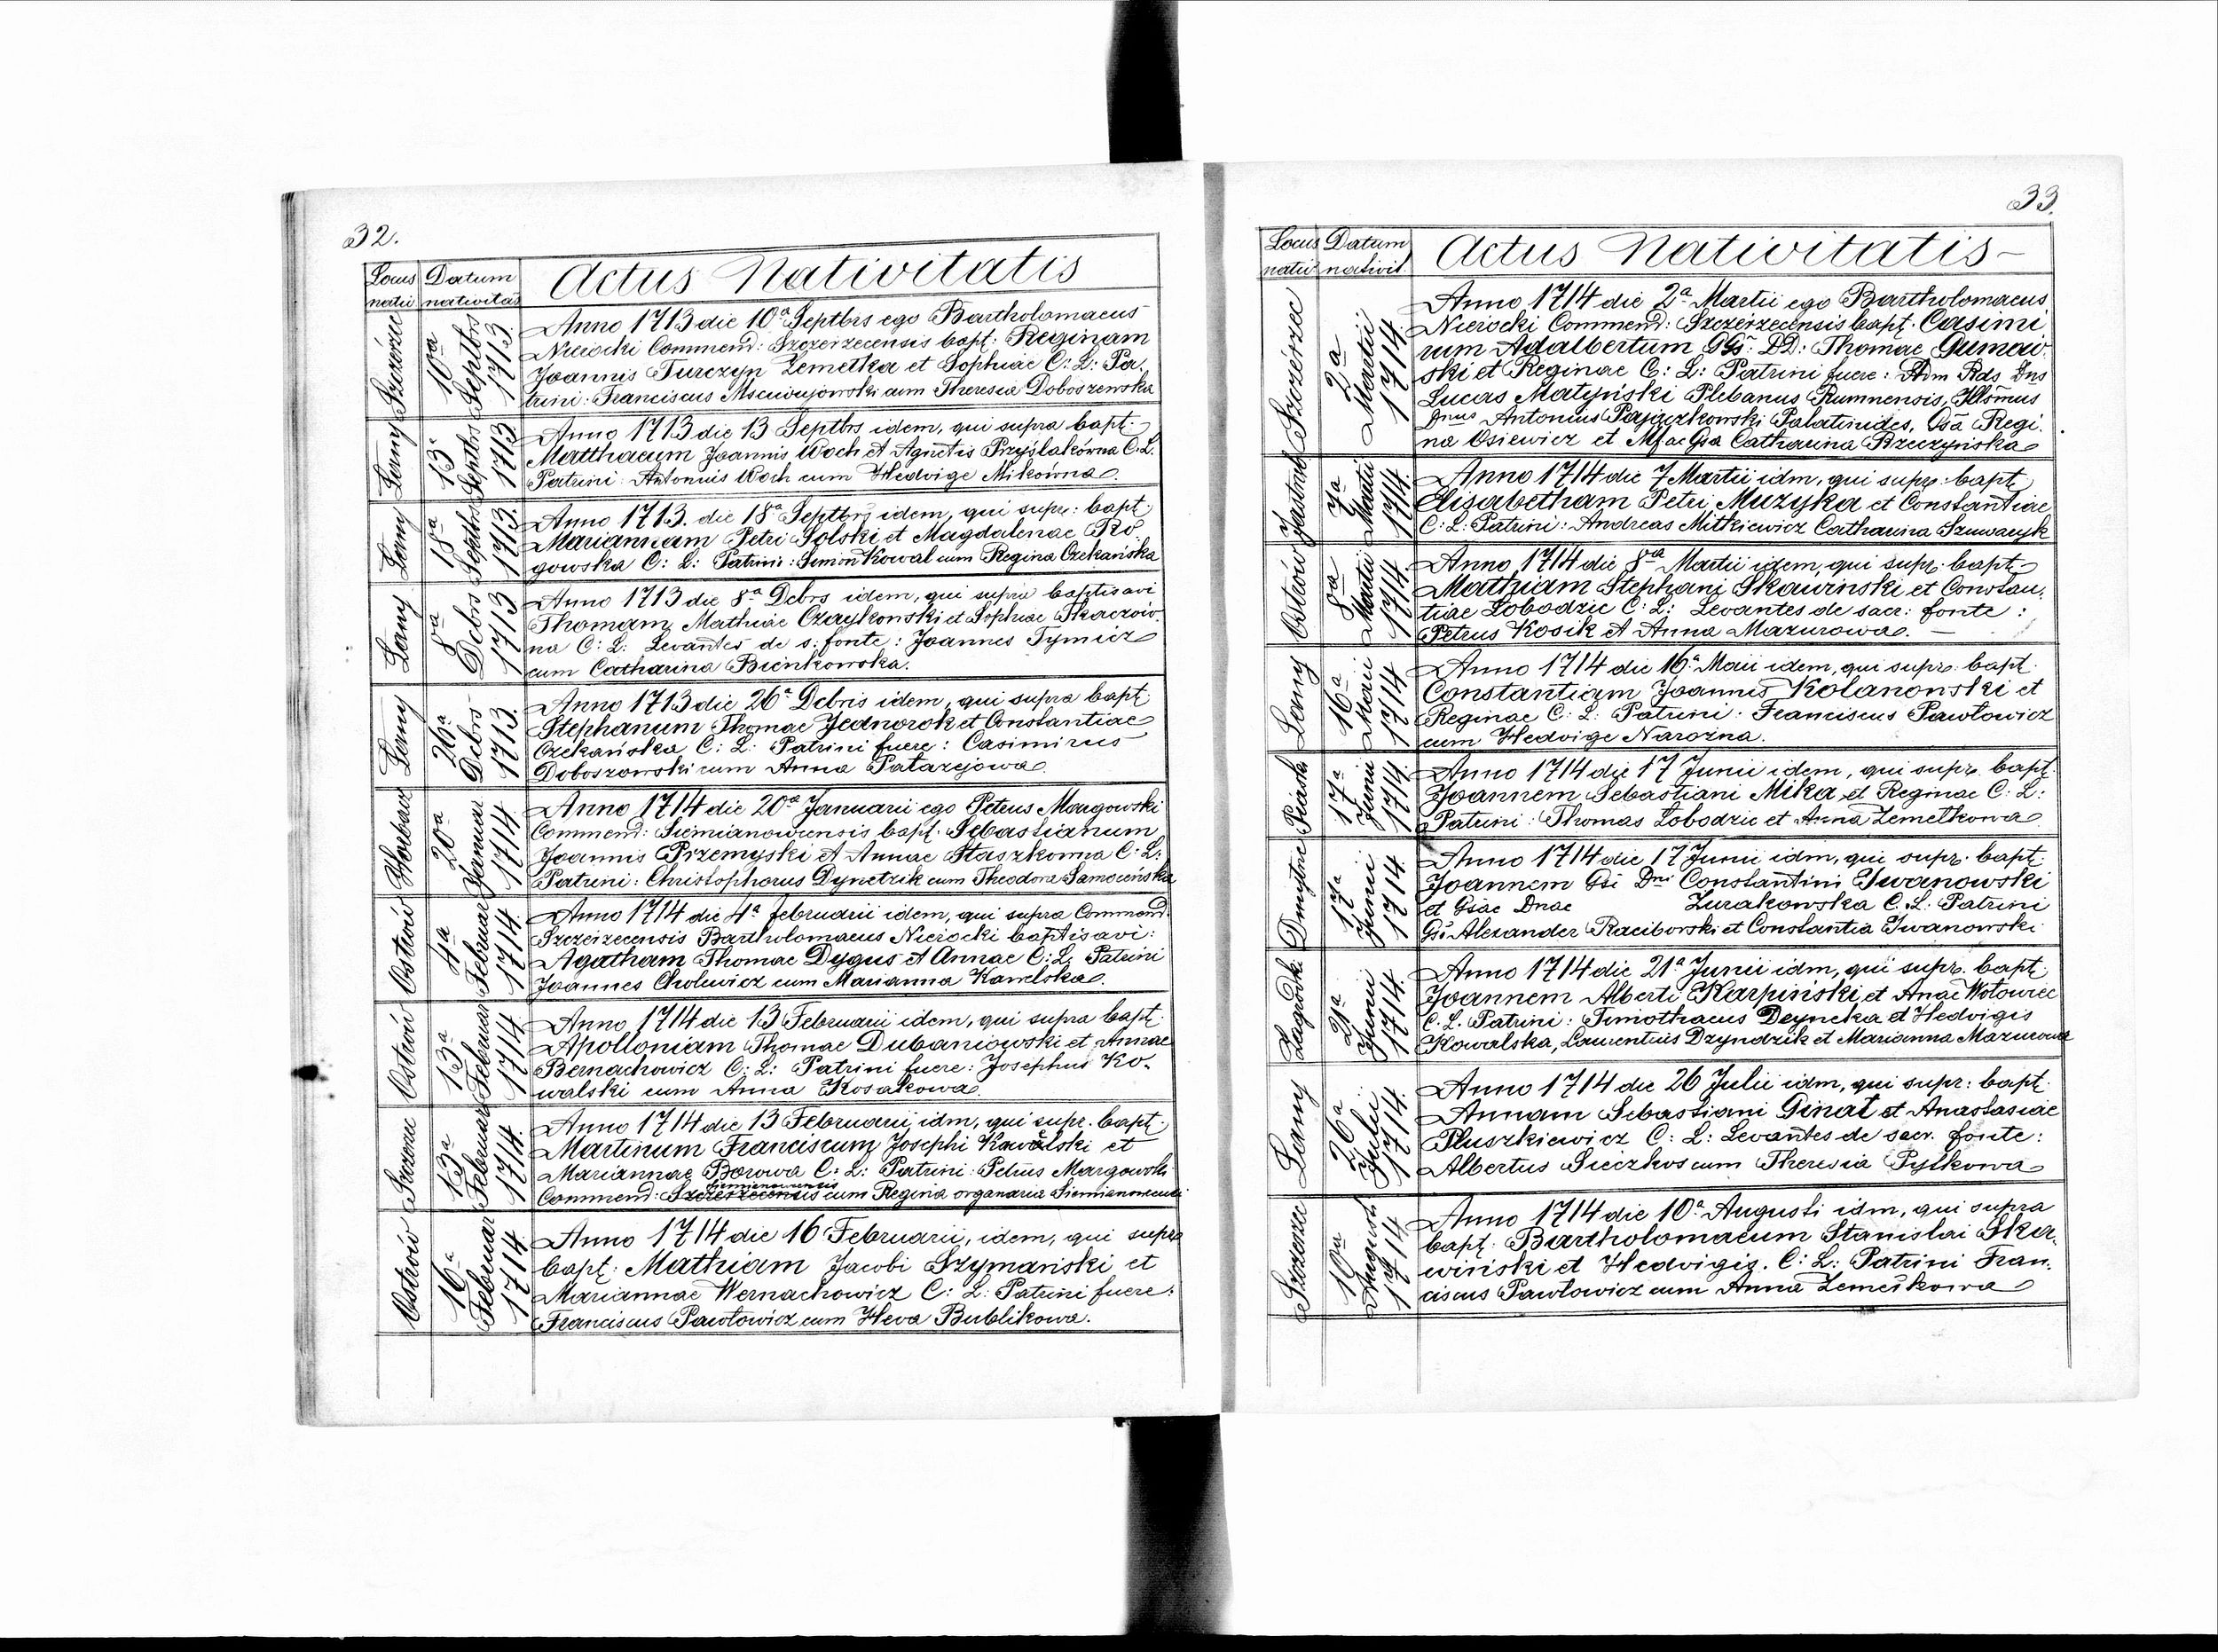 32.
Locus nativ
Datum nativitas
Actus Nativitatis
Szczérzec
10ª Septbrs 1713.
Anno 1713 die 10ª Septbrs ego Bartholomaeus
Nieriocki Commend: Szczerzecensis bapt: Reginam
Joannis Turczyn Zemetka et Sophiae C: L: Pa.
trini: Franciscus Msciwujowski cum Theresia Doboszewska
Łany
13ª Septbrs 1713
Anno 1713 die 13 Septbrs idem, qui supra bapt:
Matthaeum Joannis Woch et Agnetis Przyślakówna C. L.
Patrini: Antonius Woch cum Hedvige Mikówna.
Łany
18ª Septbr 1713.
Anno 1713. die 18ª Septbrs idem, qui supr: bapt
Mariannam Petri Solski et Magdalenae Ro.
gowska C: L: Patrini: Simon Kowal cum Regina Czekańska
Łany
8ª Debrs 1713
Anno 1713 die 8ª Debrs idem, qui supra baptisavi
Thomam Mathiae Czaykowski et Sophiae Tkaczow.
na C: L: Levantes de s: fonte: Joannes Tymicz
cum Catharina Bieńkowska.
Łany
26ª Debrs 1713.
Anno 1713 die 26ª Debris idem, qui supra bapt:
Stephanum Thomae Jednorok et Constantiae
Czekańska C: L: Patrini fuere: Casimirus
Doboszowski cum Anna Patarejowa.
Horbacz
20ª Januar 1714
Anno 1714 die 20ª Januarii ego Petrus Margowski
Commend: Siemianowcensis bapt: Sebastianum
Joannis Przemyski et Annae Staszkowna C: L:
Patrini: Christophorus Dynetrik cum Theodora Samocińska
Ostrów
4ª Februar 1714
Anno 1714 die 4ª februarii idem, qui supra Commend.
Szczerzecensis Bartholomaeus Nieriocki baptisavi:
Agatham Thomae Dygus et Annae C: L: Patrini
Joannes Cholewicz cum Marianna Kawelska.
Ostrów
13ª Februar 1714
Anno 1714 die 13 Februarii idem, qui supra bapt:
Apolloniam Thomae Dubaniowski et Annae
Bernachowicz C: L: Patrini fuere: Josephus Ko-
walski cum Anna Kosakowa.
Szczerzec
13ª Februar 1714.
Anno 1714 die 13 Februarii idm, qui supr. bapt:
Martinum Franciscum Josephi Kowalski et
Mariannae Borowa C: L: Patrini: Petrus Margowski
Siemianowcensis
Commend: Szczerzecensis cum Regina organaria Siemianowcensi
Ostrów
16ª Februar 1714.
Anno 1714 die 16 Februarii, idem, qui supra
bapt: Mathiam Jacobi Szymański et
Mariannae Wernachowicz C: L: Patrini fuere:
Franciscus Pawłowicz cum Heva Bublikowa.
33.
Locus nativ
Datum nativit.
Actus Nativitatis-
Szczérzec
2ª Martii 1714
Anno 1714 die 2ª Martii ego Bartholomaeus
Nieriocki Commend: Szczerzecensis bapt: Casimi
rum Adalbertum GG: DD: Thomae Gumow.
ski et Reginae C: L: Patrini fuere: Adm Rds Dns
Lucas Matyński Plebanus Rumnensis, Illsmus
Dnus Antonius Pajączkowski Palatinides, Gsa Regi.
na Osiewicz et Mfae Gsa Catharina Brzezynska
Jastrząb
7ª Martii 1714.
Anno 1714 die 7 Martii idm, qui supr: bapt
Elisabetham Petri Muzyka et Constantiae
C: L: Patrini: Andreas Mitkiewicz Catharina Szuwaryk
Ostrów
8ª Martii 1714
Anno 1714 die 8ª Martii idem, qui supr: bapt:
Mathiam Stephani Skawinski et Constan.
tiae Łobodzic C: L: Levantes de sacr: fonte:
Petrus Kosik et Anna Mazurowa. –
Łany
16ª Maii 1714
Anno 1714 die 16ª Maii idem, qui supr: bapt:
Constantiam Joannis Kolanowski et
Reginae C: L: Patrini: Franciscus Pawłowicz
cum Hedvige Narożna.
Piaski
17ª Junii 1714
Anno 1714 die 17 Junii idem, qui supr. bapt:
Joannem Sebastiani Mika et Reginae C: L:
Patrini: Thomas Łobodzic et Anna Zemełkowa
Dmytre
17ª Junii 1714.
Anno 1714 die 17 Junii idm, qui supr. bapt:
Joannem Gsi Dni Constantini Iwanowski
et Gsae Dnae Zurakowska C. L: Patrini
Gs Alexander Raciborski et Constantia Iwanowski
Zagódki
21ª Junii 1714.
Anno 1714 die 21ª Junii idm, qui supr. bapt:
Joannem Alberti Karpiński et Anae Wołowiec
C. L. Patrini: Timothaeus Deyneka et Hedvigis
Kowalska, Laurentius Dzyndzik et Marianna Mazurowa
Łany
26ª Julii 1714.
Anno 1714 die 26 Julii idm, qui supr: bapt:
Annam Sebastiani Ginat et Anastasiae
Pluszkiewicz C: L: Levantes de sacr. fonte:
Albertus Sieczkos cum Theresia Pyłkowa
Szczerzec
10ª Augusti 1714
Anno 1714 die 10ª Augusti idm, qui supra
bapt: Bartholomaeum Stanislai Ska.
wiński et Hedvigis. C: L: Patrini Fran.
ciscus Pawłowicz cum Anna Zemełkowa